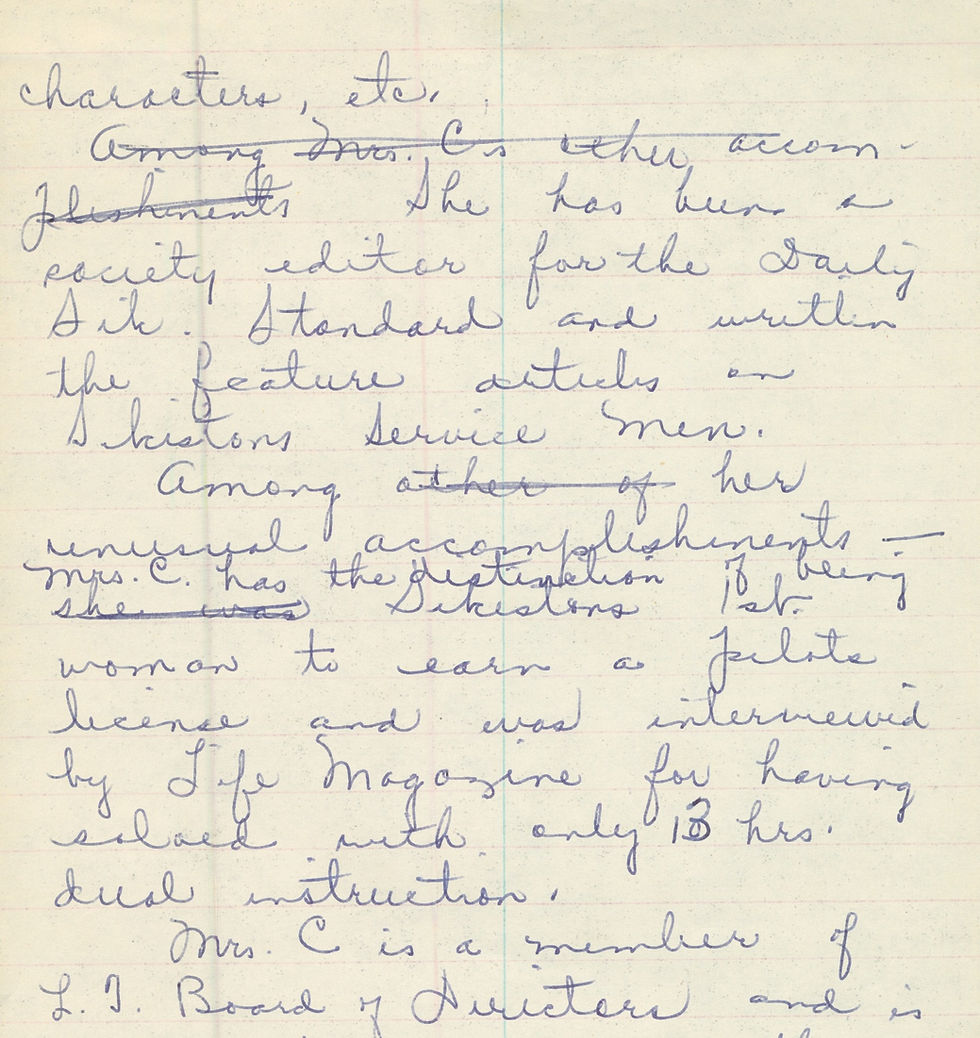 characters, etc.
Among Mrs. Cs other accom-
plishments She has been a
society editor for the Daily
Sik. Standard and written
the feature articles on
Sikestons Service Men.
Among other of her
unusual accomplishments —
Mrs. C. has the distinction of being
she was Sikestons 1st.
woman to earn a pilots
license and was interviewed
by Life Magazine for having
soloed with only 13 hrs.
dual instruction.
Mrs. C is a member of
L. T. Board of Directors and is